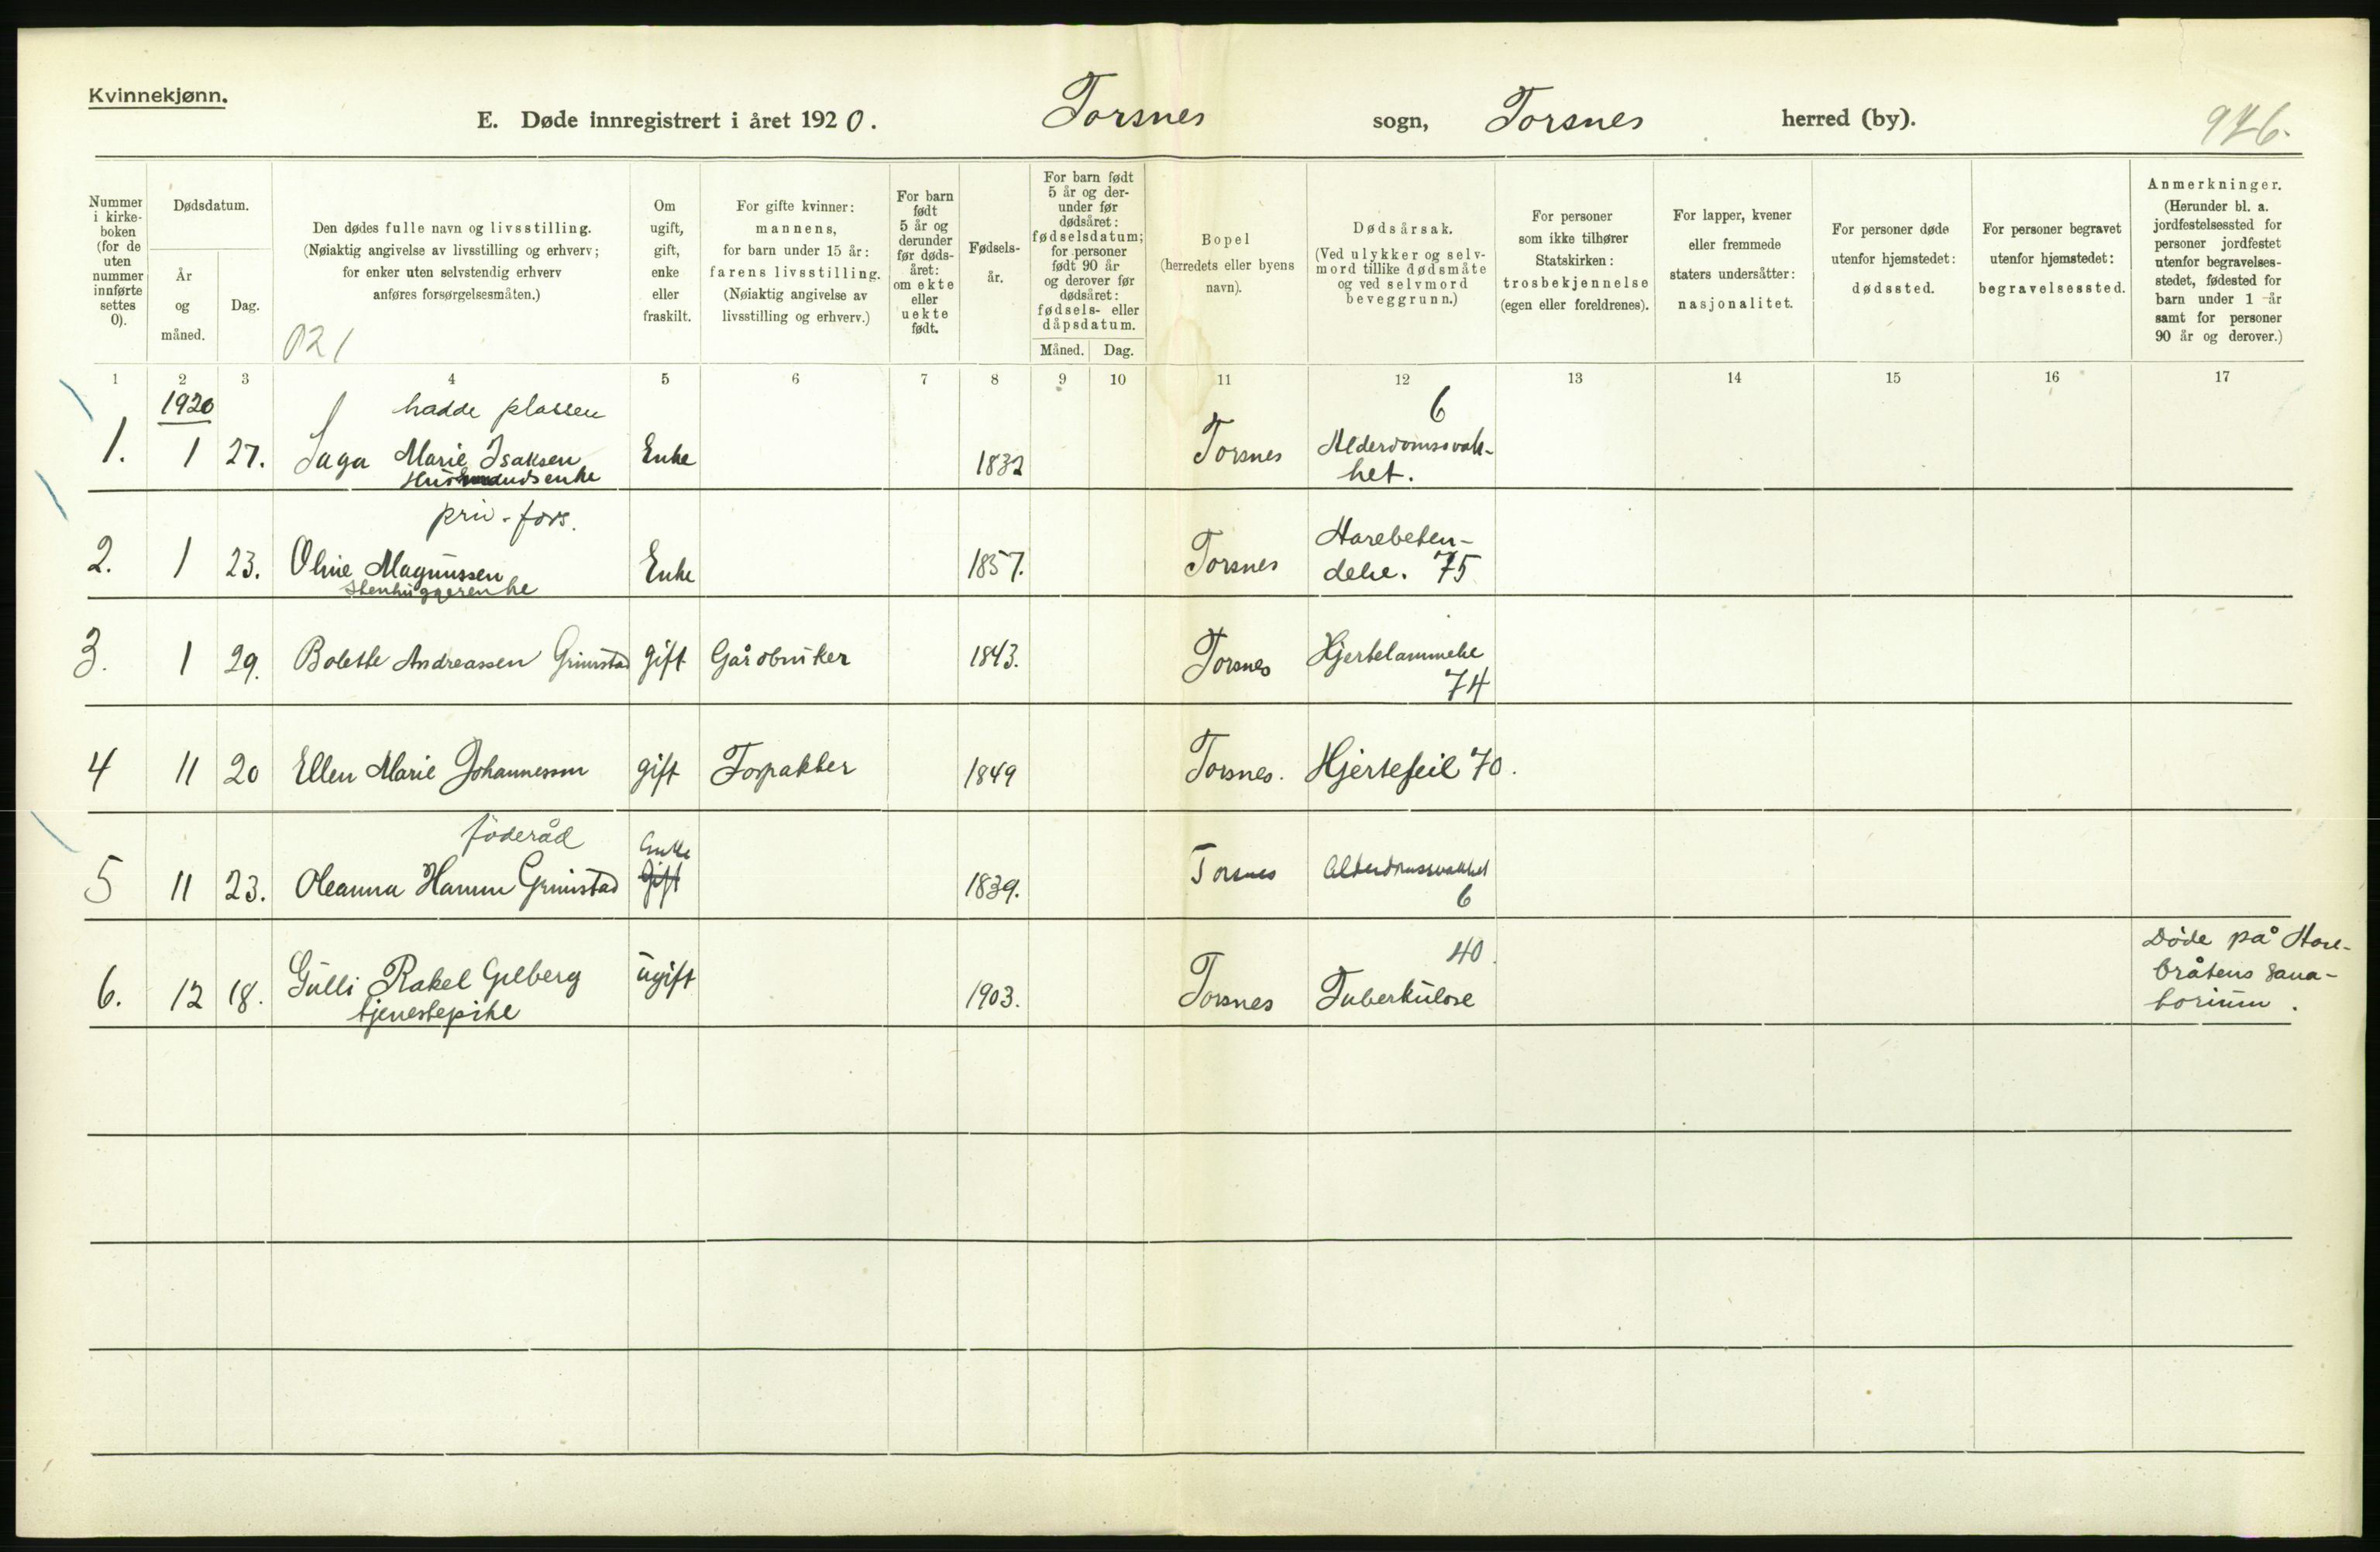 Kvinnekjønn.
E. Døde innregistrert i året 1920. Torsnes sogn, Torsnes herred (by).
Nummer i kirke-boken (for de uten nummer innførte settes 0).
Dødsdatum.
År og måned.
Dag.
Den dødes fulle navn og livsstilling.
(Nøiaktig angivelse av livsstilling og erhverv;
for enker uten selvstendig erhverv
anføres forsørgelsesmåten.)
021
Om ugift, gift, enke eller fraskilt.
For gifte kvinner:
mannens,
for barn under 15 år:
farens livsstilling.
(Nøiaktig angivelse av
livsstilling og erhverv.)
For barn født 5 år og derunder før døds-året: om ekte eller uekte født.
Fødsels-år.
For barn født 5 år og der-under før dødsåret: fødselsdatum; for personer født 90 år og derover før dødsåret: fødsels- eller dåpsdatum.
Måned. Dag.
Bopel
(herredets eller byens
navn).
Dødsårsak.
(Ved ulykker og selv-
mord tillike dødsmåte
og ved selvmord
beveggrunn.)
For personer
som ikke tilhører
Statskirken:
trosbekjennelse
(egen eller foreldrenes).
For lapper, kvener
eller fremmede
staters undersåtter:
nasjonalitet.
For personer døde
utenfor hjemstedet:
dødssted.
For personer begravet
utenfor hjemstedet:
begravelsessted.
Anmerkninger.
(Herunder bl. a.
jordfestelsessted for
personer jordfestet
utenfor begravelses-
stedet, fødested for
barn under 1 år
samt for personer
90 år og derover.)
1 2 3 4 5 6 7 8 9 10 11 12 13 14 15 16 17
1920
hadde plassen
6
1. 1 27. Saga Marie Isaksen Enke 1832 Torsnes Alderdomssvak-
het.
priv. fors.
2. 1 23. Oline Magnussen Enke 1857. Torsnes Harebeten-
delse. 75
Stenhuggerenke
3. 1 29. Bolette Andreassen Grimstad gift Gårdbruker 1843. Torsnes Hjertelammelse
74
4 11 20 Ellen Marie Johannessen gift Forpakter 1849 Torsnes. Hjertefeil 70.
föderåd
Enke
5 11 23. Oleanna Hansen Grimstad Gift 1839. Torsnes Alderdomssvakhet
6
40.
6. 12 18. Gulli Rakel Gilberg ugift 1903. Torsnes Tuberkulose
tjenestepike
Døde på Hare-
bråtens sana-
torium.